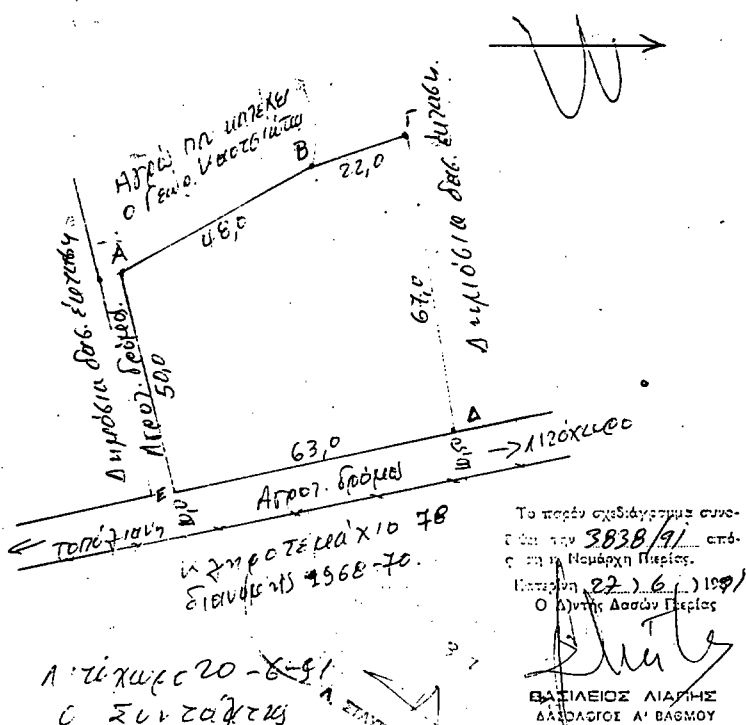 Αγρό που κατέχει
ο Γεώρ.
Γ
Β
22,0
48,0
Α
Δημόσια δασ. έκταση
Αγροτ. δρόμος
50,0
67,0
Δημόσια δασ. έκταση.
Δ
63,0
Ε
10,0
10,0
Αγροτ. δρόμος
→ Λιτόχωρο
← τοπόλιανη
κληροτεμάχιο 78
διανομής 1968-70.
Το παρόν σχεδιάγραμμα συνο-
την 3838/91 από-
Νομάρχη Πιερίας.
Κατερίνη 27) 6 ) 1991
Ο Δ)ντής Δασών Πιερίας
ΒΑΣΙΛΕΙΟΣ ΛΙΑΠΗΣ
ΔΑΣΟΛΟΓΟΣ Α' ΒΑΘΜΟΥ
Λιτόχωρο 20-6-91
Ο Συντάκτης